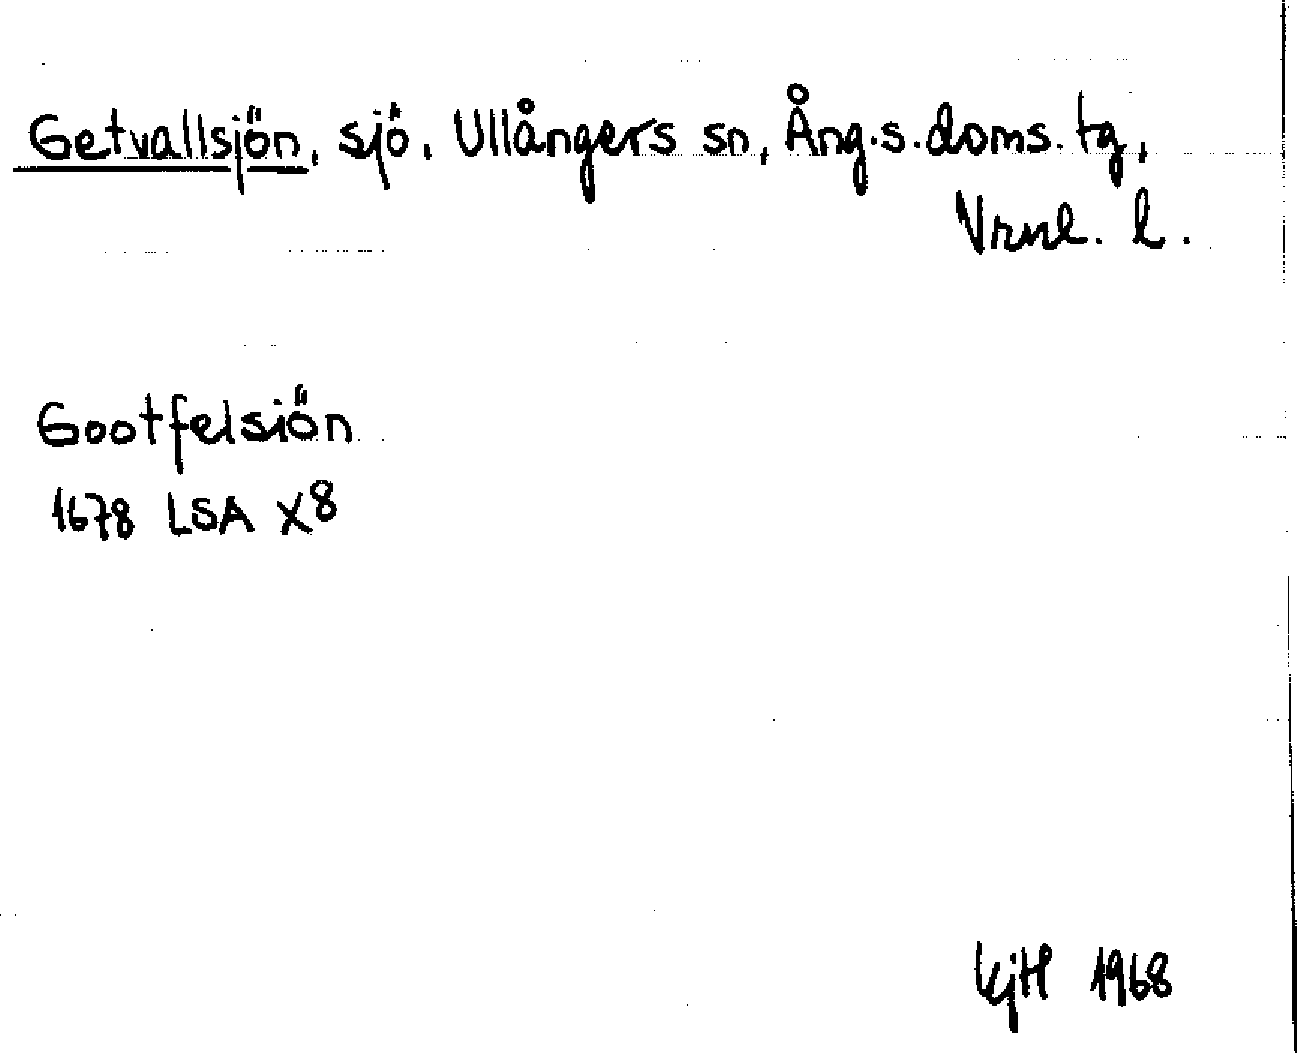 Getvallsjön, sjö, Ullångers sn, Ång.s.doms.tg,
Vrnl. l.
Gootfelsiön
1678 LSA X8
KjH 1968